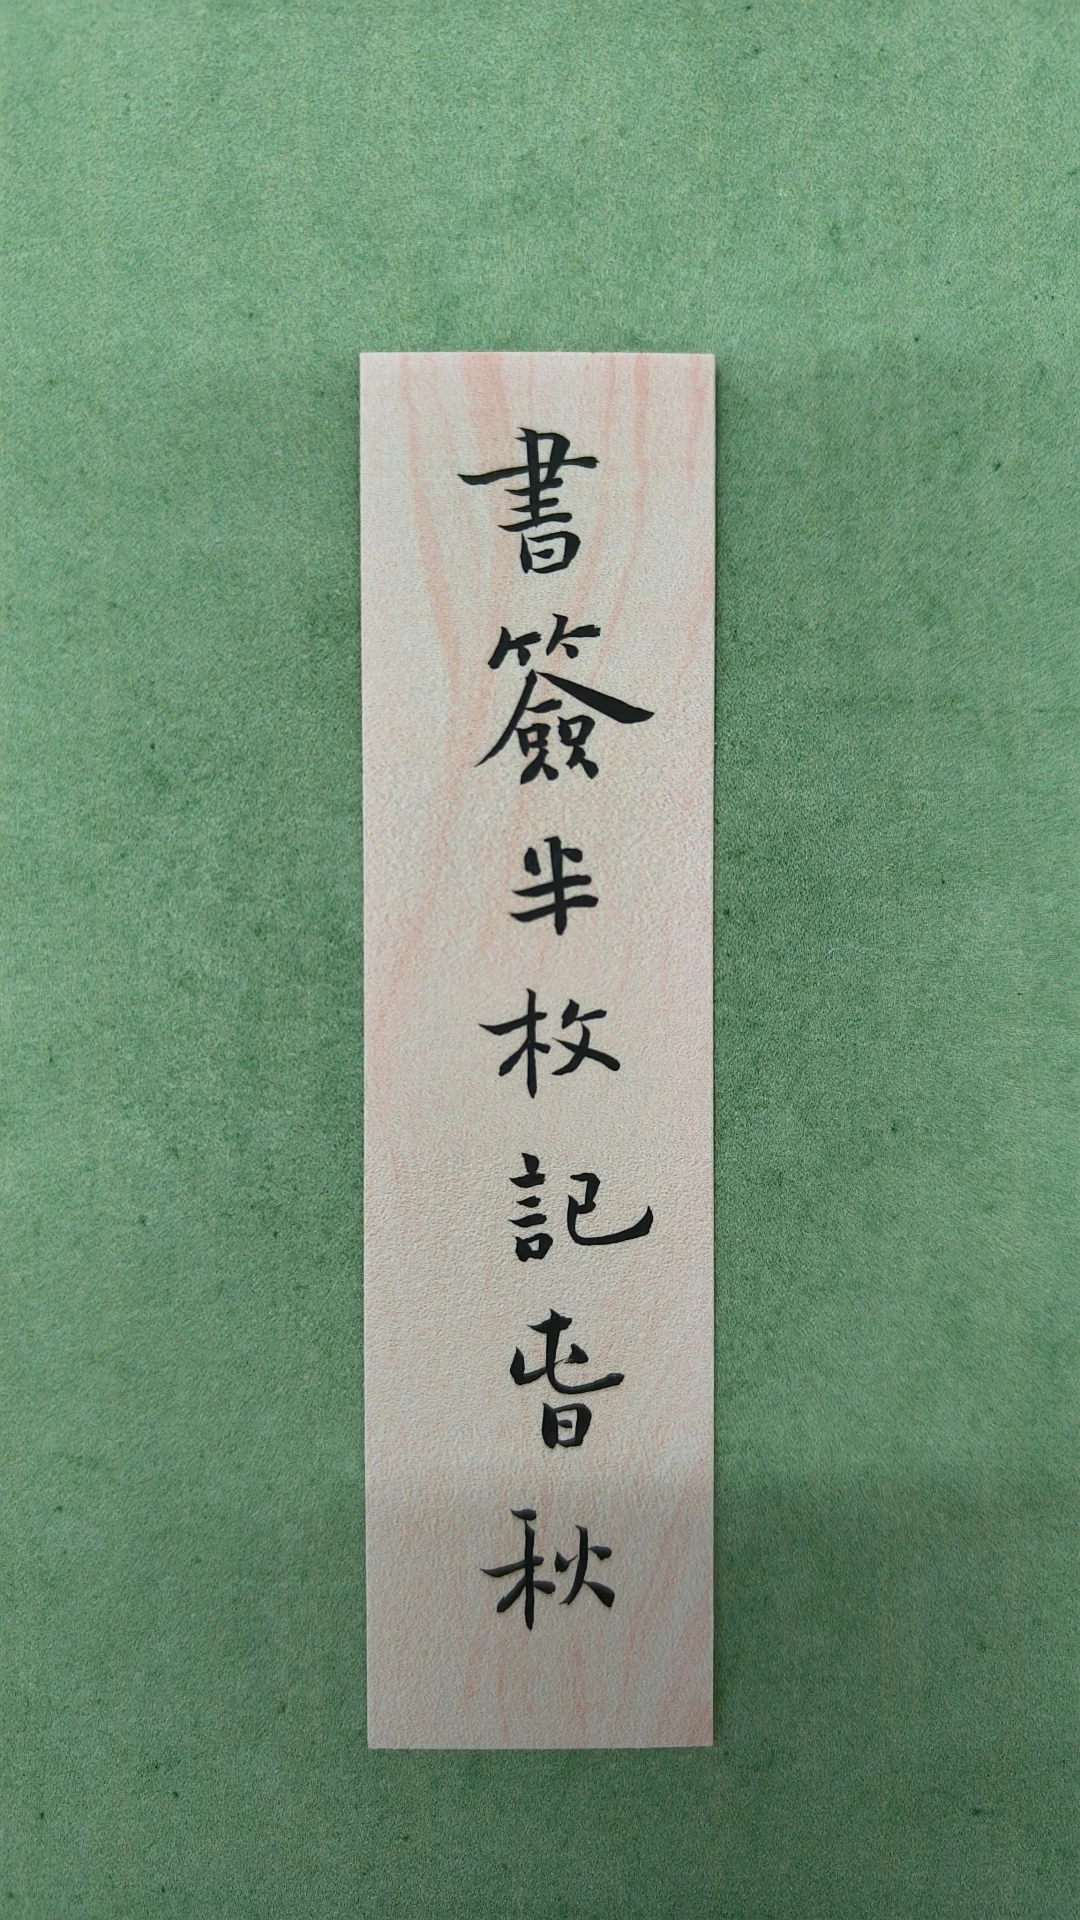 書簽半枚記旾秋